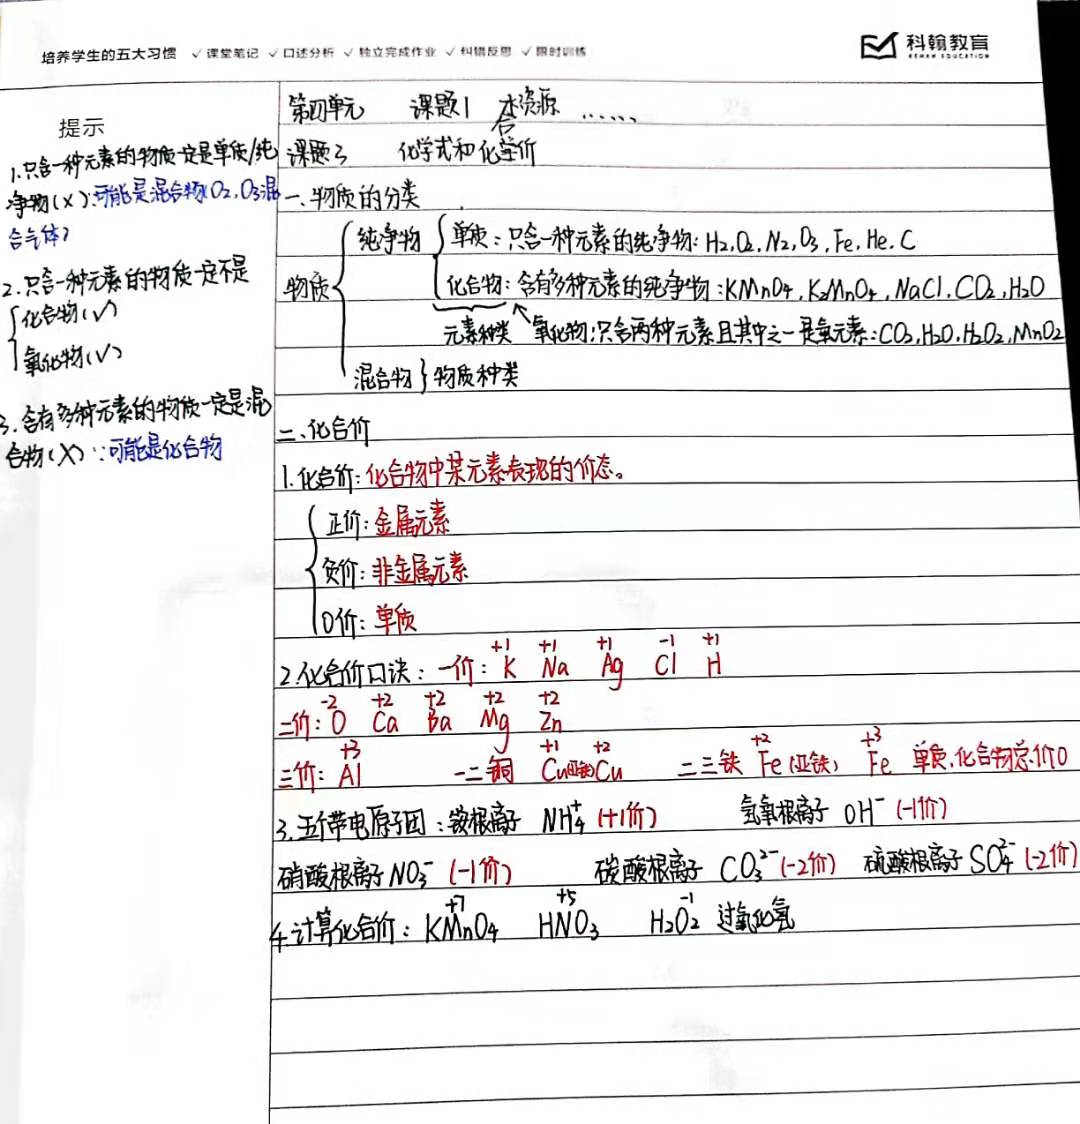 培养学生的五大习惯 ✓课堂笔记 ✓口述分析 ✓独立完成作业 ✓纠错反思 ✓限时训练
科翰教育
KEHAN EDUCATION
提示
1.只含一种元素的物质一定是单质/纯
净物(×)∵可能是混合物(O2,O3混
合气体)
2.只含一种元素的物质一定不是
化合物(√)
氧化物(√)
3.含有多种元素的物质一定是混
合物(×)∵可能是化合物
第四单元 课题1 水资源 ……
课题3 化学式和化合价
一、物质的分类
纯净物 单质:只含一种元素的纯净物:H2,O2,N2,O3,Fe,He,C
物质 化合物:含有多种元素的纯净物:KMnO4,K2MnO4,NaCl,CO2,H2O
元素种类 氧化物:只含两种元素且其中之一是氧元素:CO2,H2O,H2O2,MnO2
混合物}物质种类
二、化合价
1.化合价:化合物中某元素表现的价态。
正价:金属元素
负价:非金属元素
0价:单质
2.化合价口诀:一价:K⁺¹ Na⁺¹ Ag⁺¹ Cl⁻¹ H⁺¹
二价:O⁻² Ca⁺² Ba⁺² Mg⁺² Zn⁺²
三价:Al⁺³ 一二铜 Cu⁺¹(亚铜)Cu⁺² 二三铁 Fe⁺²(亚铁) Fe⁺³ 单质,化合物总价0
3.五个带电原子团:铵根离子 NH₄⁺(+1价) 氢氧根离子 OH⁻(-1价)
硝酸根离子NO₃⁻(-1价) 碳酸根离子 CO₃²⁻(-2价) 硫酸根离子SO₄²⁻(-2价)
4.计算化合价:KMn⁺⁷O4 HN⁺⁵O3 H2O⁻¹2 过氧化氢